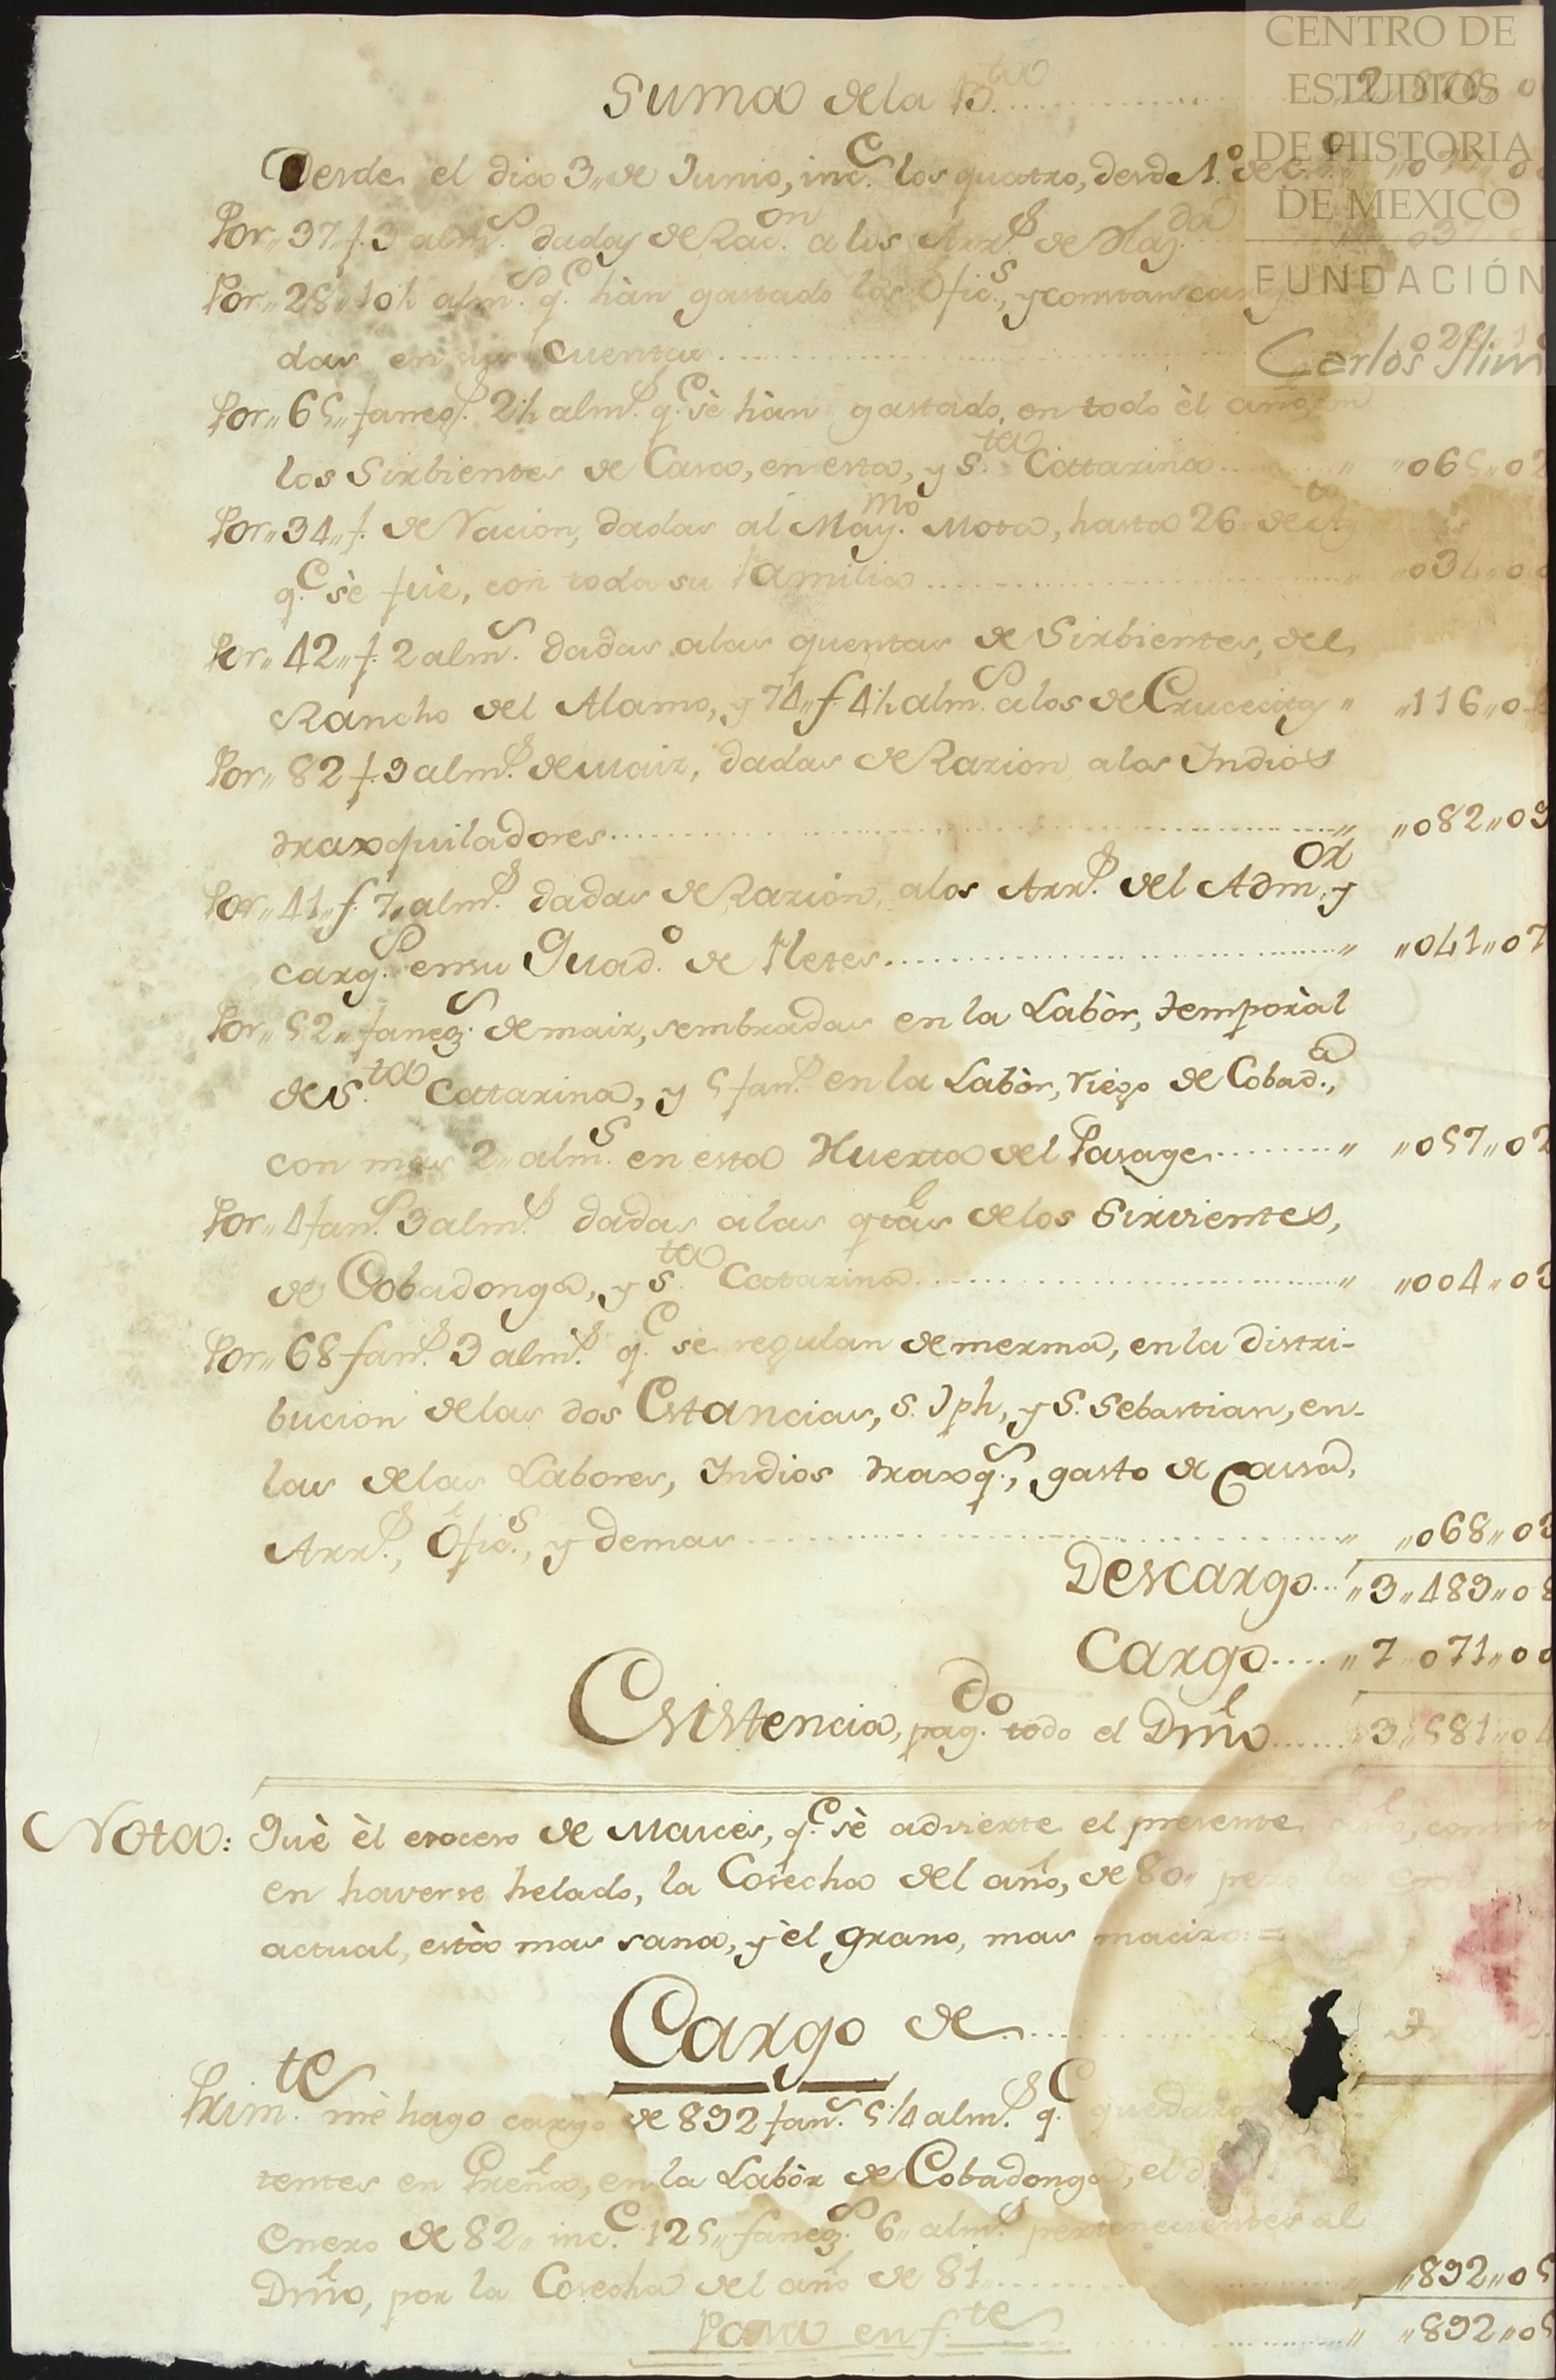 CENTRO DE
ESTUDIOS
DE HISTORIA
DE MEXICO
FUNDACIÓN
Carlos Slim
Suma de la B.ta
Desde el dia 3,, de Junio, inc.e los quatro, desde 1.o de
Por,, 37,, f. 3 alm.s dadas de Rac.on a los Arr.s de Haz.da
Por,, 28,, 10½ alm.s q.e hàn gastado los Ofic.s, y constan carga
das en sus cuentas
Por,, 65,, faneg.s 2½ alm.s q.e sè hàn gastado, en todo èl año, en
los Sirbientes de Casa, en esta, y S.ta Cattarina ,, ,,065,,02
Por,, 34,, f. de Racion, dadas al May.mo Mota, hasta 26,, de
q.e sè fuè, con toda su familia ,, ,,034,,0
Por,, 42,, f. 2 alm.s dadas alas quentas de Sirbientes, del
Rancho del Alamo, y 74,, f. 4½ alm.s alos de Crucecitas ,, ,,116,,0
Por,, 82 f. 9 alm.s de maiz, dadas de Razion alos Indios
traxquiladores ,, ,,082,,09
Por,, 41,, f. 7,, alm.s dadas de Razion, alos Arr.s del Adm.or y
carg.s en su Quad.o de Fletes ,, ,,041,,07
Por,, 52,, faneg.s de maiz, sembradas en la Labòr, temporàl
de S.ta Cattarina, y 5 fan.s en la Labòr, riego de Cobad.a,
con mas 2,, alm.s en esta Huerta del Pasage ,, ,,057,,02
Por,, 4 fan.s 3 alm.s dadas alas qtas delos Sirvientes,
de Cobadonga, y S.ta Catarina ,, ,,004,,03
Por,, 68 fan.s 3 alm.s q.e se regulan de merma, en la distri-
bucion delas dos Estancias, S. Jph, y S. Sebastian, en-
las delas Labores, Indios traxq.s, gasto de Cassa,
Arr.s, Ofic.s, y demas ,, ,,068,,03
Descargo ,,3,,489,,08
Cargo ,,7,,071,,00
Existencia, pag.do todo el Dmo ,,3,,581,,04
Nota: Què èl exceso de Maices, q.e sè advierte el presente
en haverse helado, la Cosecha del año, de 80,, pero la
actual, està mas sana, y èl grano, mas macizo =
Cargo de
Prim.te mè hago cargo de 892 fan.s 5¼ alm.s q.e
tentes en Greña, en la Labòr de Cobadonga, el
Enero de 82,, inc.e 125,, faneg.s 6,, alm.s pertenecientes al
Dmo, por la Cosecha del año de 81 ,, ,,892,,05
Pasa en f.te ,, ,,892,,05